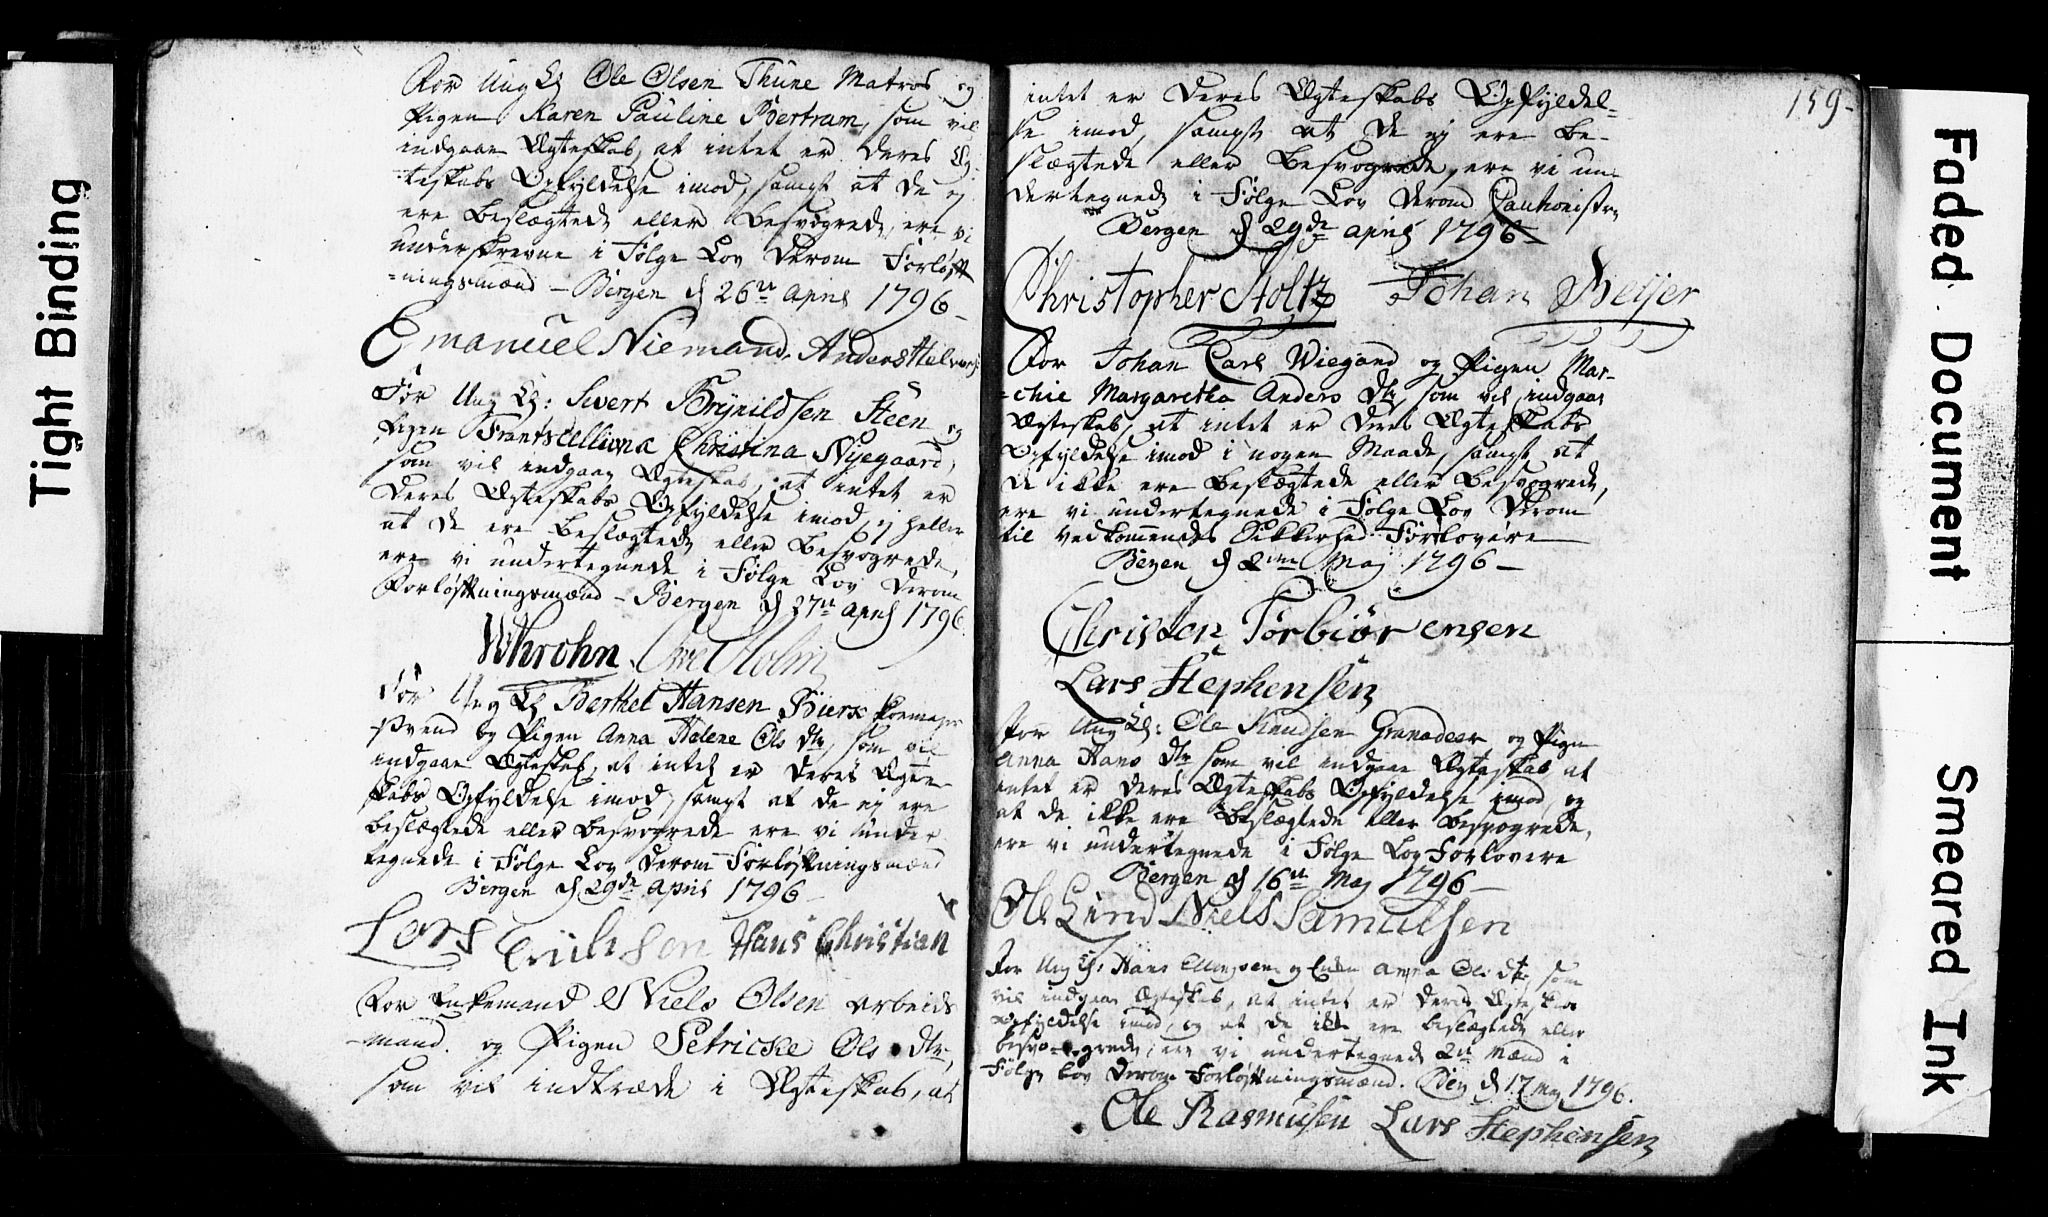 Tight Binding
For Ung K: Ole Olsen Thune Matros og
Pigen Karen Pauline Bertram, som vil
indgaae Ægteskab, at intet er deres Æg-
teskabs Opfyldelse imod, sampt at de ej
ere beslægtede eller besvogrede, ere vi
underskrevne i Følge Lov derom Forløft-
=ningsmænd – Bergen d 26de April 1796 –
Emanuel Niemand. Anders
For Ung K: Sivert Brynildsen Steen og
Pigen Christina Nyegaard,
som vil indgaae Ægteskab, at intet er
deres Ægteskabs Opfyldelse imod, ej heller
at de ere beslægtede eller besvogrede,
ere vi undertegnede i Følge Lov derom
Forløftningsmænd – Bergen d 27de April 1796.
Holm
For Ung K: Berthel Hansen
Svend og Pigen Anna Helene Ols dtr, som vil
indgaae Ægteskab, at intet er deres Ægte-
skabs Opfyldelse imod, sampt at de ej ere
beslægtede eller besvogrede ere vi under-
tegnede i Følge Lov derom Forløftningsmænd
Bergen d 29de April 1796 –
Lars Hans Christian
For Enkemand Niels Olsen Arbeids
=mand. og Pigen Petricke Ols dtr,
som vil indtræde i Ægteskab, at
159-
intet er deres Ægteskabs Opfyldel=
se imod, sampt at de ej ere be-
slægtede eller besvogrede, ere vi un-
dertegnede i Følge Lov derom Cautionister
Bergen d 29de April 1796
Christopher Stoltz Johan Beijer
For Johan Carl Wiegand og Pigen Mar-
=chie Margaretha Anders dtr, som vil indgaae
Ægteskab, at intet er deres Ægteskabs
Opfyldelse imod i nogen Maade, sampt at
de ikke ere beslægtede eller besvogrede,
ere vi undertegnede i Følge Lov derom
til vedkommendes Sikkerhed Forlovere
Bergen d 2den Maj 1796 –
Christen Torbiörensen
Lars Stephensen
For Ung K: Ole Knudsen Granadeer og Pigen
Anna Hans dtr som vil indgaae Ægteskab at
intet er deres Ægteskabs Opfyldelse imod, og
at de ikke ere beslægtede eller besvogrede,
ere vi undertegnede i Følge Lov Forlovere
Bergen d 16de Maj 1796 –
Ole Lind Niels Samuelsen
For Ung K: Hans og Enken Anna Ols dtr, som
vil indgaae Ægteskab, at intet er deres Ægteskabs
Opfyldelse imod, og at de ikke ere beslægtede eller
besvogrede, ere vi undertegnede 2de Mænd i
Følge Lov derom Forløftningsmænd. d 17 May 1796.
Ole Rasmusen Lars Stephensen
Faded Document
Smeared Ink